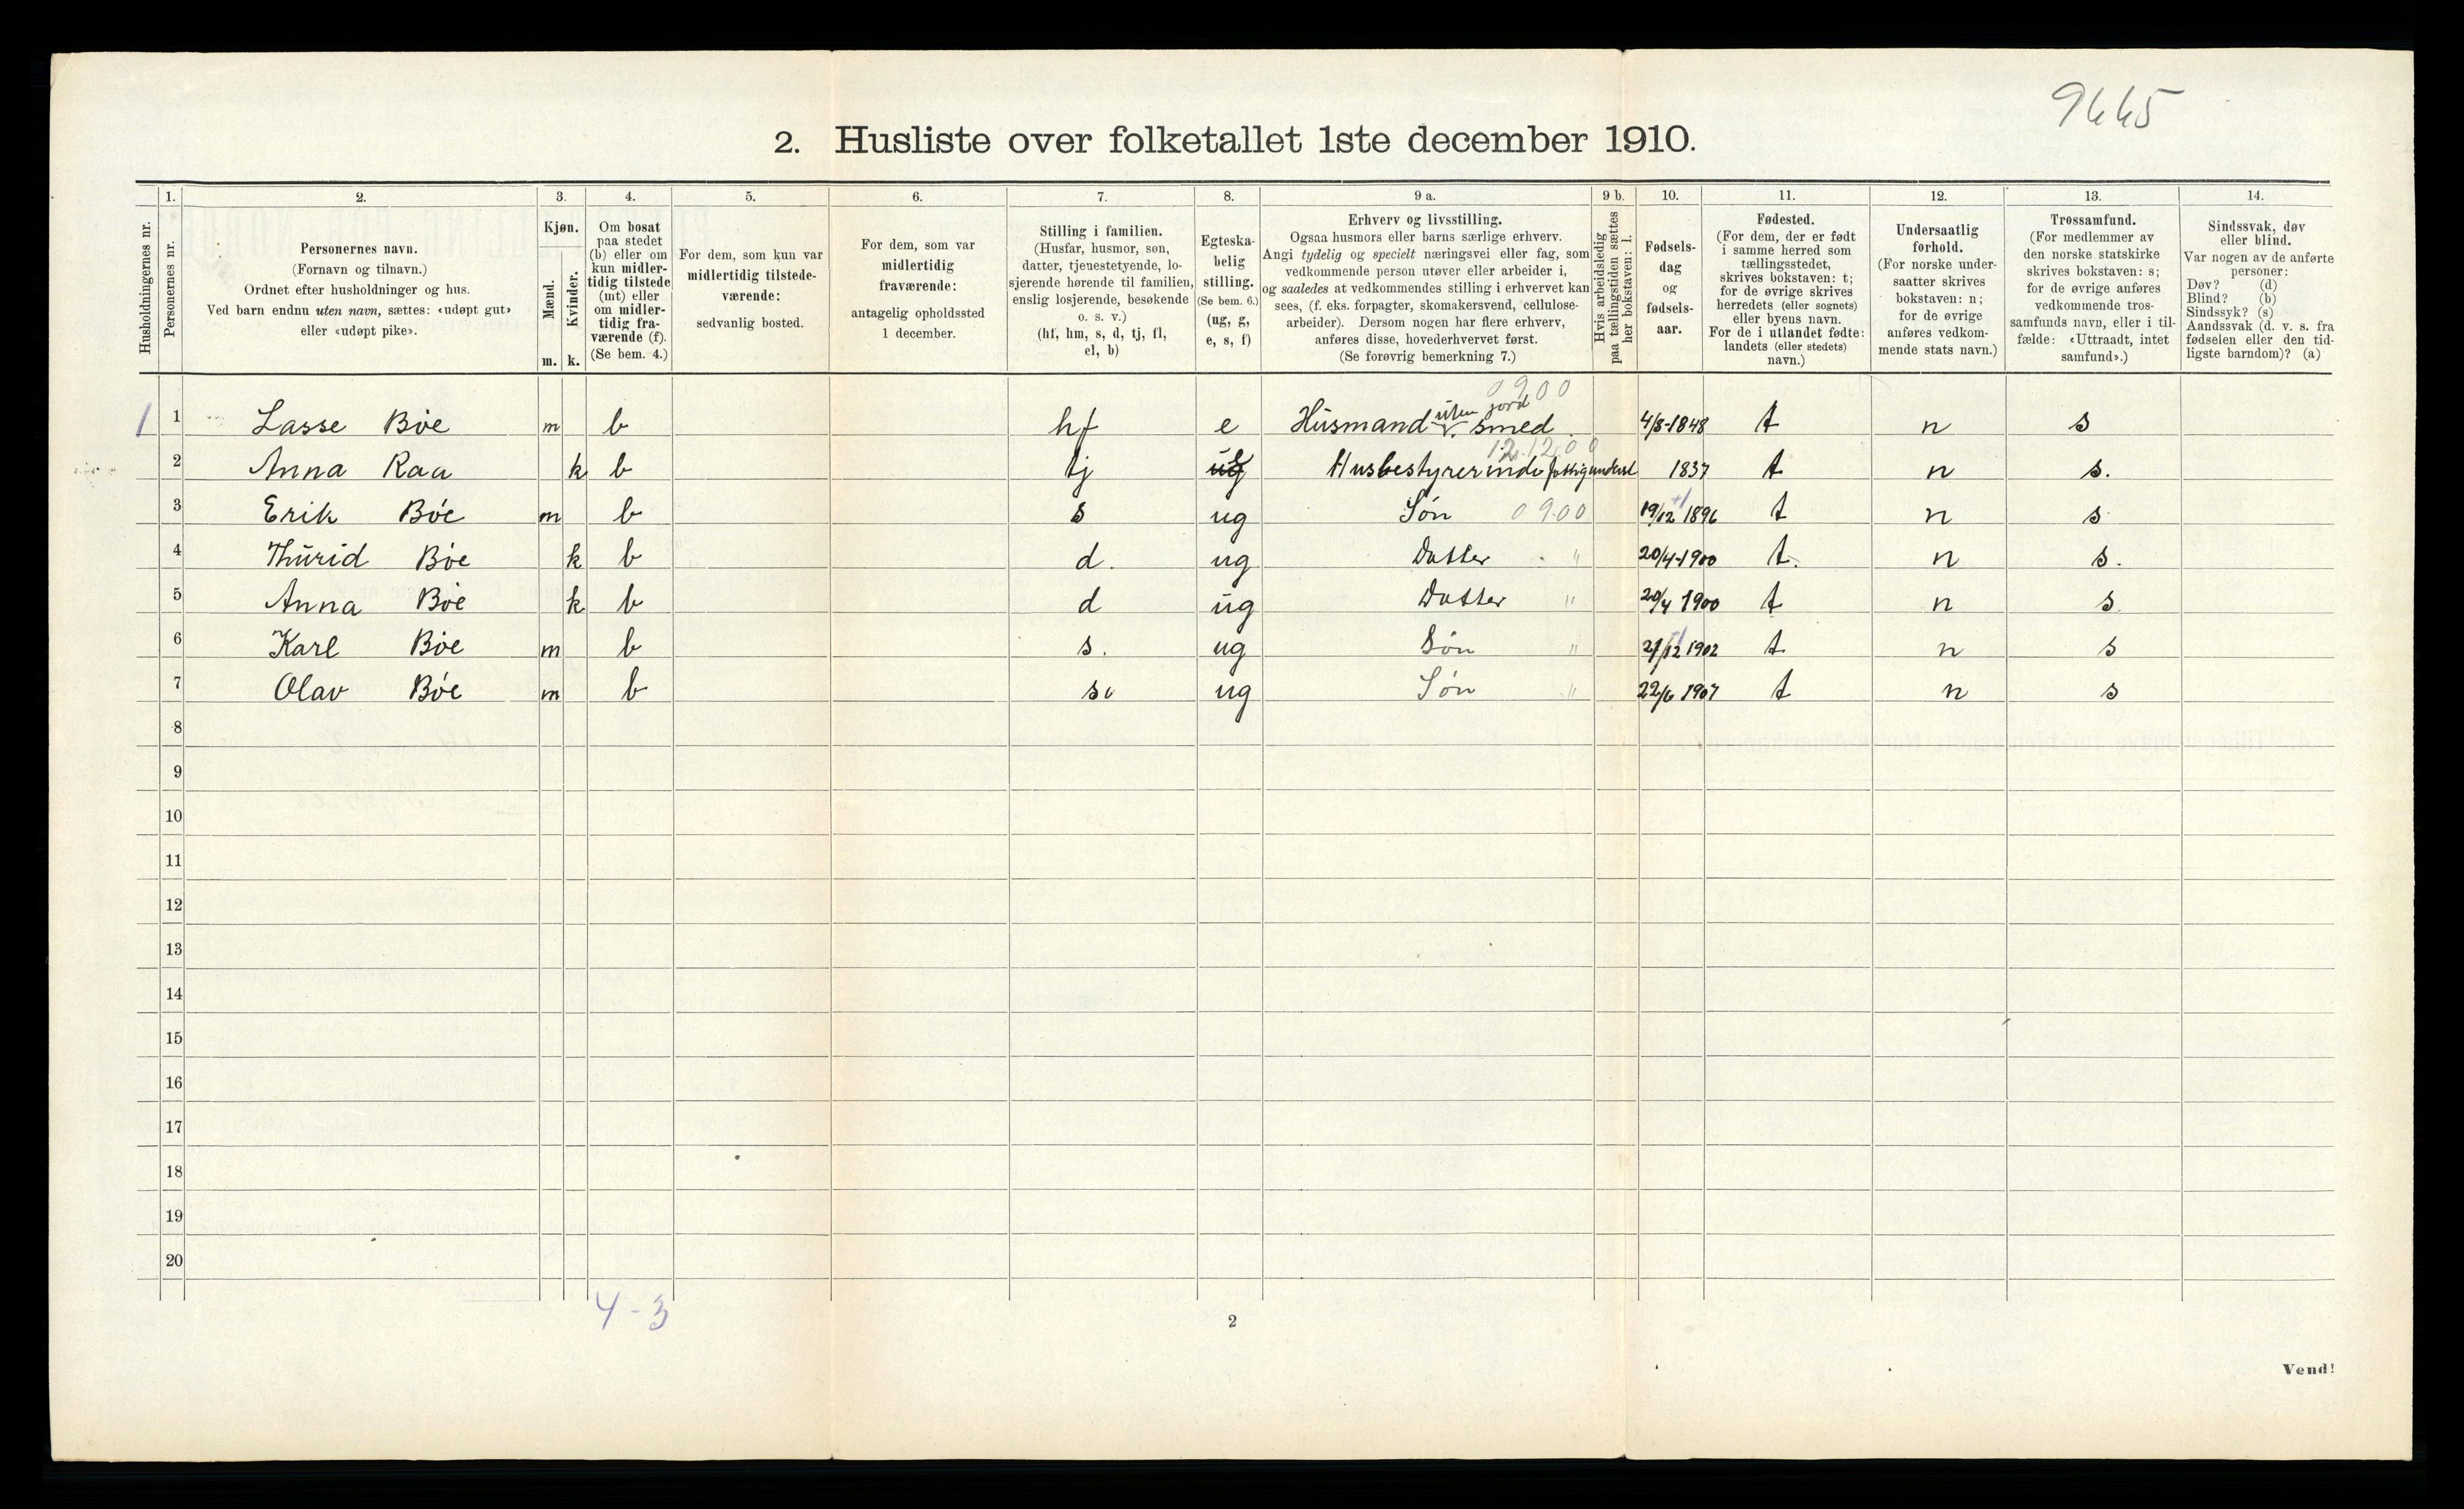 9665
2. Husliste over folketallet 1ste december 1910.
Husholdningernes nr.
1.
Personernes nr.
2.
Personernes navn.
(Fornavn og tilnavn.)
Ordnet efter husholdninger og hus.
Ved barn endnu uten navn, sættes: «udøpt gut»
eller «udøpt pike».
3.
Kjøn.
Mænd.
Kvinder.
m. k.
4.
Om bosat
paa stedet
(b) eller om
kun midler-
tidig tilstede
(mt) eller
om midler-
tidig fra-
værende (f).
(Se bem. 4.)
5.
For dem, som kun var
midlertidig tilstede-
værende:
sedvanlig bosted.
6.
For dem, som var
midlertidig
fraværende:
antagelig opholdssted
1 december.
7.
Stilling i familien.
(Husfar, husmor, søn,
datter, tjenestetyende, lo-
sjerende hørende til familien,
enslig losjerende, besøkende
o. s. v.)
(hf, hm, s, d, tj, fl,
el, b)
8.
Egteska-
belig
stilling.
(Se bem. 6.)
(ug, g,
e, s, f)
9 a.
Erhverv og livsstilling.
Ogsaa husmors eller barns særlige erhverv.
Angi tydelig og specielt næringsvei eller fag, som
vedkommende person utøver eller arbeider i,
og saaledes at vedkommendes stilling i erhvervet kan
sees, (f. eks. forpagter, skomakersvend, cellulose-
arbeider). Dersom nogen har flere erhverv,
anføres disse, hovederhvervet først.
(Se forøvrig bemerkning 7.)
9 b.
Hvis arbeidsledig
paa tællingstiden sættes
her bokstaven: l.
10.
Fødsels-
dag
og
fødsels-
aar.
11.
Fødested.
(For dem, der er født
i samme herred som
tællingsstedet,
skrives bokstaven: t;
for de øvrige skrives
herredets (eller sognets)
eller byens navn.
For de i utlandet fødte:
landets (eller stedets)
navn.)
12.
Undersaatlig
forhold.
(For norske under-
saatter skrives
bokstaven: n;
for de øvrige
anføres vedkom-
mende stats navn.)
13.
Trossamfund.
(For medlemmer av
den norske statskirke
skrives bokstaven: s;
for de øvrige anføres
vedkommende tros-
samfunds navn, eller i til-
fælde: «Uttraadt, intet
samfund».)
14.
Sindssvak, døv
eller blind.
Var nogen av de anførte
personer:
Døv? (d)
Blind? (b)
Sindssyk? (s)
Aandssvak (d. v. s. fra
fødselen eller den tid-
ligste barndom)? (a)
0900
uten jord
1 1 Lasse Bøe m b hf e Husmand v. smed. 4/8-1848 t n s
12.1200
2 Anna Raa k b tj ug Husbestyrerinde fattigunderst 1837 t n s.
3 Erik Bøe m b s ug Søn 0900 19/12 1896 t n s
4 Thurid Bøe k b d. ug Datter " 20/4-1900 t. n s.
5 Anna Bøe k b d ug Datter " 20/4 1900 t n s.
6 Karl Bøe m b s. ug Søn " 21/12 1902 t n s
7 Olav Bøe m b s. ug Søn " 22/6 1907 t n s
8
9
10
11
12
13
14
15
16
17
18
19
20
4-3
2
Vend!